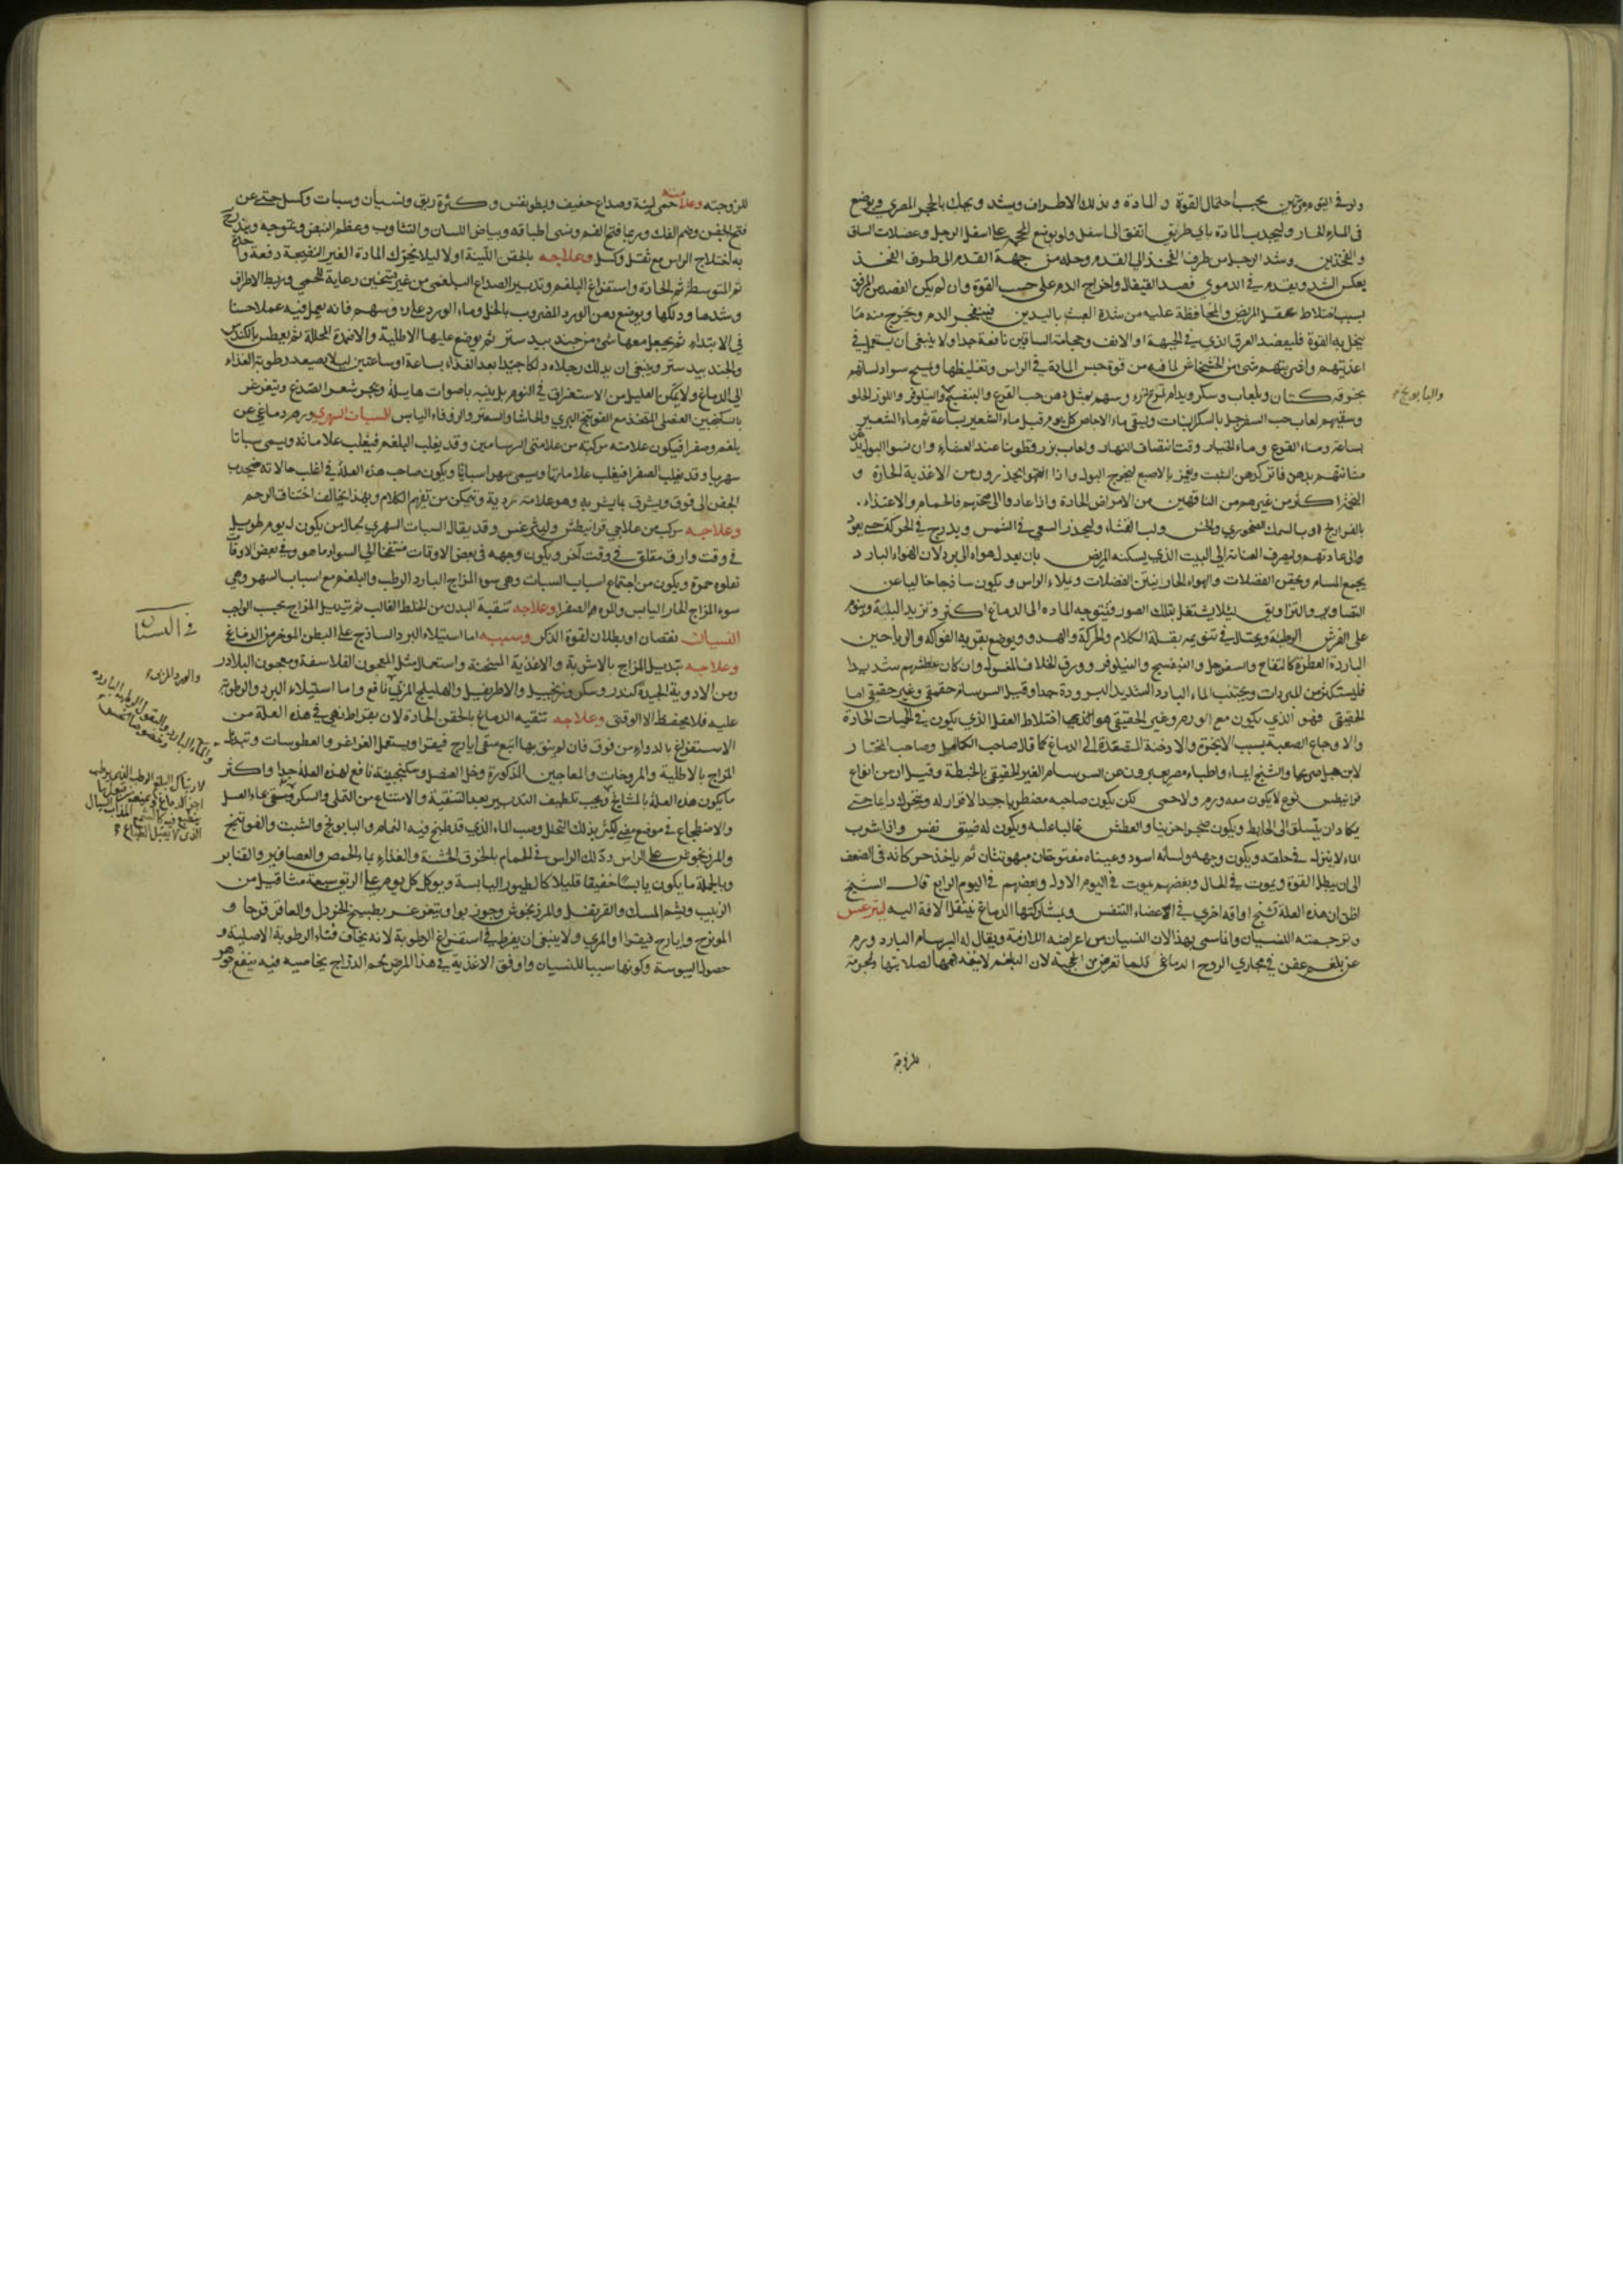 ولو في اليوم مرتين بحسب احتمال القوة والمادة وبذلك الاطراف ويشد ويحك بالحجر المصري ويوضع
في الماء الحار وليجذب المادة باي طريق اتفق الى اسفل ولو بوضع المحجم على اسفل الرجل وعضلات الساق
والفخذين وشد الرجل من طرف الفخذ الى القدم وحله من جهة القدم الى طرف الفخذ
بعكس الشد ويقدم في الدموي فصد القيفال واخراج الدم على حسب القوة وان لم يكن الفصد من المرفق
بسبب اختلاط عقل المريض والمحافظة عليه من شدة العبث باليدين فينفجر الدم ويخرج منه ما
يخل به القوة فليفصد العرق الذي في الجبهة او الانف وحجامة الساقين نافعة جدا ولا ينبغي ان يستعمل في
اغذيتهم واشربتهم شئ من الخشخاش لما فيه من قوة حبس المادة في الراس وتغليظها ويمسح سواد لسانهم
بخرقة كتان وبلعاب وسكر ويدام تمريخ رؤسهم بمثل دهن حب القرع والبنفسج والنيلوفر واللوز الحلو
والبابونج
وسقيهم لعاب حب السفرجل بالسكر البنات ويسقى ماء الاجاص كل يوم قبل ماء الشعير بساعة ثم ماء الشعير
بساعة وماء القرع وماء الخيار وقت انتصاف النهار ولعاب بزر قطونا عند العشاء وان نسوا البول يدهن
مثانتهم بدهن فاتر كدهن الشبت ويغمز بالاصبع ليخرج البول واذا انتهوا يحذرون من الاغذية الحارة و
التخم اكثر من غيرهم من الناقهين من الامراض الحادة واذا عادوا الى صحتهم فالحمام والاغتذاء
بالفراريج او بالسمك الصخوري والخس ولب القثاء وليحذر السعي في الشمس ويدرج في الحركة حتى يعود
والى عادتهم وليصرف العناية الى البيت الذي يسكنه المريض بان يعدل هواه الى برد لان الهواء البارد
يجمع المسام ويحقن الفضلات والهواء الحار يثير الفضلات ويملاء الراس ويكون ساذجا خاليا عن
التصاوير والتزاويق لئلا يشتغل بتلك الصور فيتوجه المادة الى الدماغ اكثر وتزيد البلية وينوم
على الفرش الوطية ويحتال في تنويمه بقلة الكلام والحركة والهدو ويوضع بقربه الفواكه والرياحين
الباردة العطرة كالتفاح والسفرجل والبنفسج والنيلوفر وورق الخلاف المغسول وان كان عطشهم شديدا
فليستكثر من المبردات ويجتنب الماء البارد الشديد البرودة جدا وقيل السرسام حقيقي وغير حقيقي اما
الحقيقي فهو الذي يكون مع الورم وغير الحقيقي هو اختلاط العقل الذي يكون في الحميات الحادة
والاوجاع الصعبة بسبب الابخرة والادخنة المتصعدة الى الدماغ كما قال صاحب الكامل وصاحب المختار
لابن هبل صريحا والشيخ ايماء واطباء مصر يعبرون عن السرسام الغير الحقيقي بالخبطة وقيل ان من انواع
قرانيطس نوع لا يكون معه ورم ولا حمى لكن يكون صاحبه مضطربا جدا لا قرار له ويتحرك دايما حتى
يكاد ان يتسلق الى الحايط ويكون ضجرا حزينا والعطش غالبا عليه ويكون له ضيق نفس واذا شرب
الماء لا ينزل في حلقه ويكون وجهه ولسانه اسود وعيناه مفتوحتان مبهوتتان ثم ياخذ حركاته في الضعف
الى ان يبطل القوة ويموت في الحال وبعضهم يموت في اليوم الاول وبعضهم في اليوم الرابع قال الشيخ
اظن ان هذه العلة تشنج او افة اخرى في الاعضاء التنفس وبمشاركتها الدماغ ينتقل الافة اليه ليثرغس
وترجمته النسيان وانما سمي بهذا لان النسيان من اعراضه اللازمة ويقال له السرسام البارد ورم
عن بلغم عفن في مجاري الروح الدماغي قلما تعرض من الحجبة لان البلغم لا ينفذ فيها لصلابتها ولجوهر
للزوجته
للزوجته وعلامته حمى لينة وصداع خفيف وبطو نفس وكثرة ريق ونسيان وسبات وكسل حتى عن
فتح الجفن وضم الفك وربما فتح الفم ونسى اطباقه وبياض اللسان والتثاوب وعظم النبض وتموجه ويتدرج
به اختلاج الراس مع ثقل وكسل وعلاجه بالحقن اللينة اولا ليلا يحرك المادة الغير النضيجة دفعة
ثم المتوسطة ثم الحادة واستفراغ البلغم وتدبير الصداع البلغمي من غير تسخين رعاية للحمى وربط الاطراف
وشدها ودلكها ويوضع دهن الورد المضروب بالخل وماء الورد على رؤسهم فانه يعمل فيه عملا حسنا
في الابتداء ثم يجعل معها شئ من جند بيدستر ثم يوضع عليها الاطلية والاضمدة المحللة ثم يعطس بالكندس
والجند بيدستر وينبغي ان يدلك رجلاه دلكا جيدا بعد الغذاء بساعة او ساعتين ليلا يصعد رطوبة الغذاء
الى الدماغ ولا يمكن العليل من الاستغراق في النوم بل ينبه باصوات هايلة وبجر شعر الصدغ ويتغرغر
بالسكنجبين العنصلي المتخذ مع الفوتنج البري والحاشا والصعتر والزوفاء اليابس السبات السهري ورم دماغي عن
بلغم وصفرا فيكون علامته مركبة من علامتي السرسامين وقد يغلب البلغم فيغلب علاماته ويسمى سباتا
سهريا وقد يغلب الصفرا فيغلب علاماتها ويسمى سهرا سباتيا ويكون صاحب هذه العلة في اغلب حالاته منجذب
الجفن الى فوق ويشرق بما يشربه وهو علامة ردية ويتمكن من تفهم الكلام وبهذا يخالف اختناق الرحم
وعلاجه مركب من علاجي قرانيطس وليثرغس وقد يقال السبات السهري لحال من يكون له نوم طويل
في وقت وارق مقلق في وقت آخر ويكون وجهه في بعض الاوقات منتفخا الى السواد ما هو وفي بعض الاوقات
تعلوه حمرة ويكون من اجتماع اسباب السبات وهي سوء المزاج البارد الرطب والبلغم مع اسباب السهر وهي
سوء المزاج الحار اليابس والمرة الصفرا وعلاجه تنقية البدن من الخلط الغالب ثم تبديل المزاج بحسب الواجب
في النسيان
النسيان نقصان او بطلان لقوة الذكر وسببه اما استيلاء البرد الساذج على البطن الموخر من الدماغ
وعلاجه تبديل المزاج بالاشربة والاغذية المسخنة واستعمال مثل المعجون الفلاسفة ومعجون البلادر
ومن الادوية الجيدة كندر وسكر وزنجبيل والاطريفل والهليلج المربى نافع واما استيلاء البرد والرطوبة
عليه فلا يحفظ الا الوقتي وعلاجه تنقية الدماغ بالحقن الحادة لان بقراط نهى في هذه العلة من
الاستفراغ بالدواء من فوق فان لم ينق بها اتبع سقي ايارج فيقرا ويستعمل الغراغر والعطوسات وتبديل
المزاج بالاطلية والمروخات والمعاجين المذكورة وخل العنصل وسكنجبينه نافع لهذه العلة جدا واكثر
ما يكون هذه العلة بالمشايخ ويجب تلطيف التدبير بعد التنقية والامتناع من التملي والسكر وسقي ماء العسل
والاضطجاع في موضع مضئ ليكثر بذلك التحلل وصب الماء الذي قد طبخ فيه النمام والبابونج والشبت والفوتنج
والمرزنجوش على الراس ودلك الراس في الحمام بالخرق الخشنة والغذاء بماء الحمص والعصافير والقنابر
وبالجملة ما يكون يابسا خفيفا قليلا كالطيور اليابسة ويوكل كل يوم على الريق سبعة مثاقيل من
الزبيب ويشم المسك والقرنفل والمرزنجوش وجوز بوا ويتغرغر بطبيخ الخردل والعاقر قرحا و
المويزج وايارج فيقرا والمري ولا ينبغي ان يفرط في استفراغ الرطوبة لانه يخاف فناء الرطوبة الاصلية و
حصول اليبوسة وكونها سببا للنسيان واوفق الاغذية في هذا المرض لحم الدراج بخاصية فيه ينفع جوهر